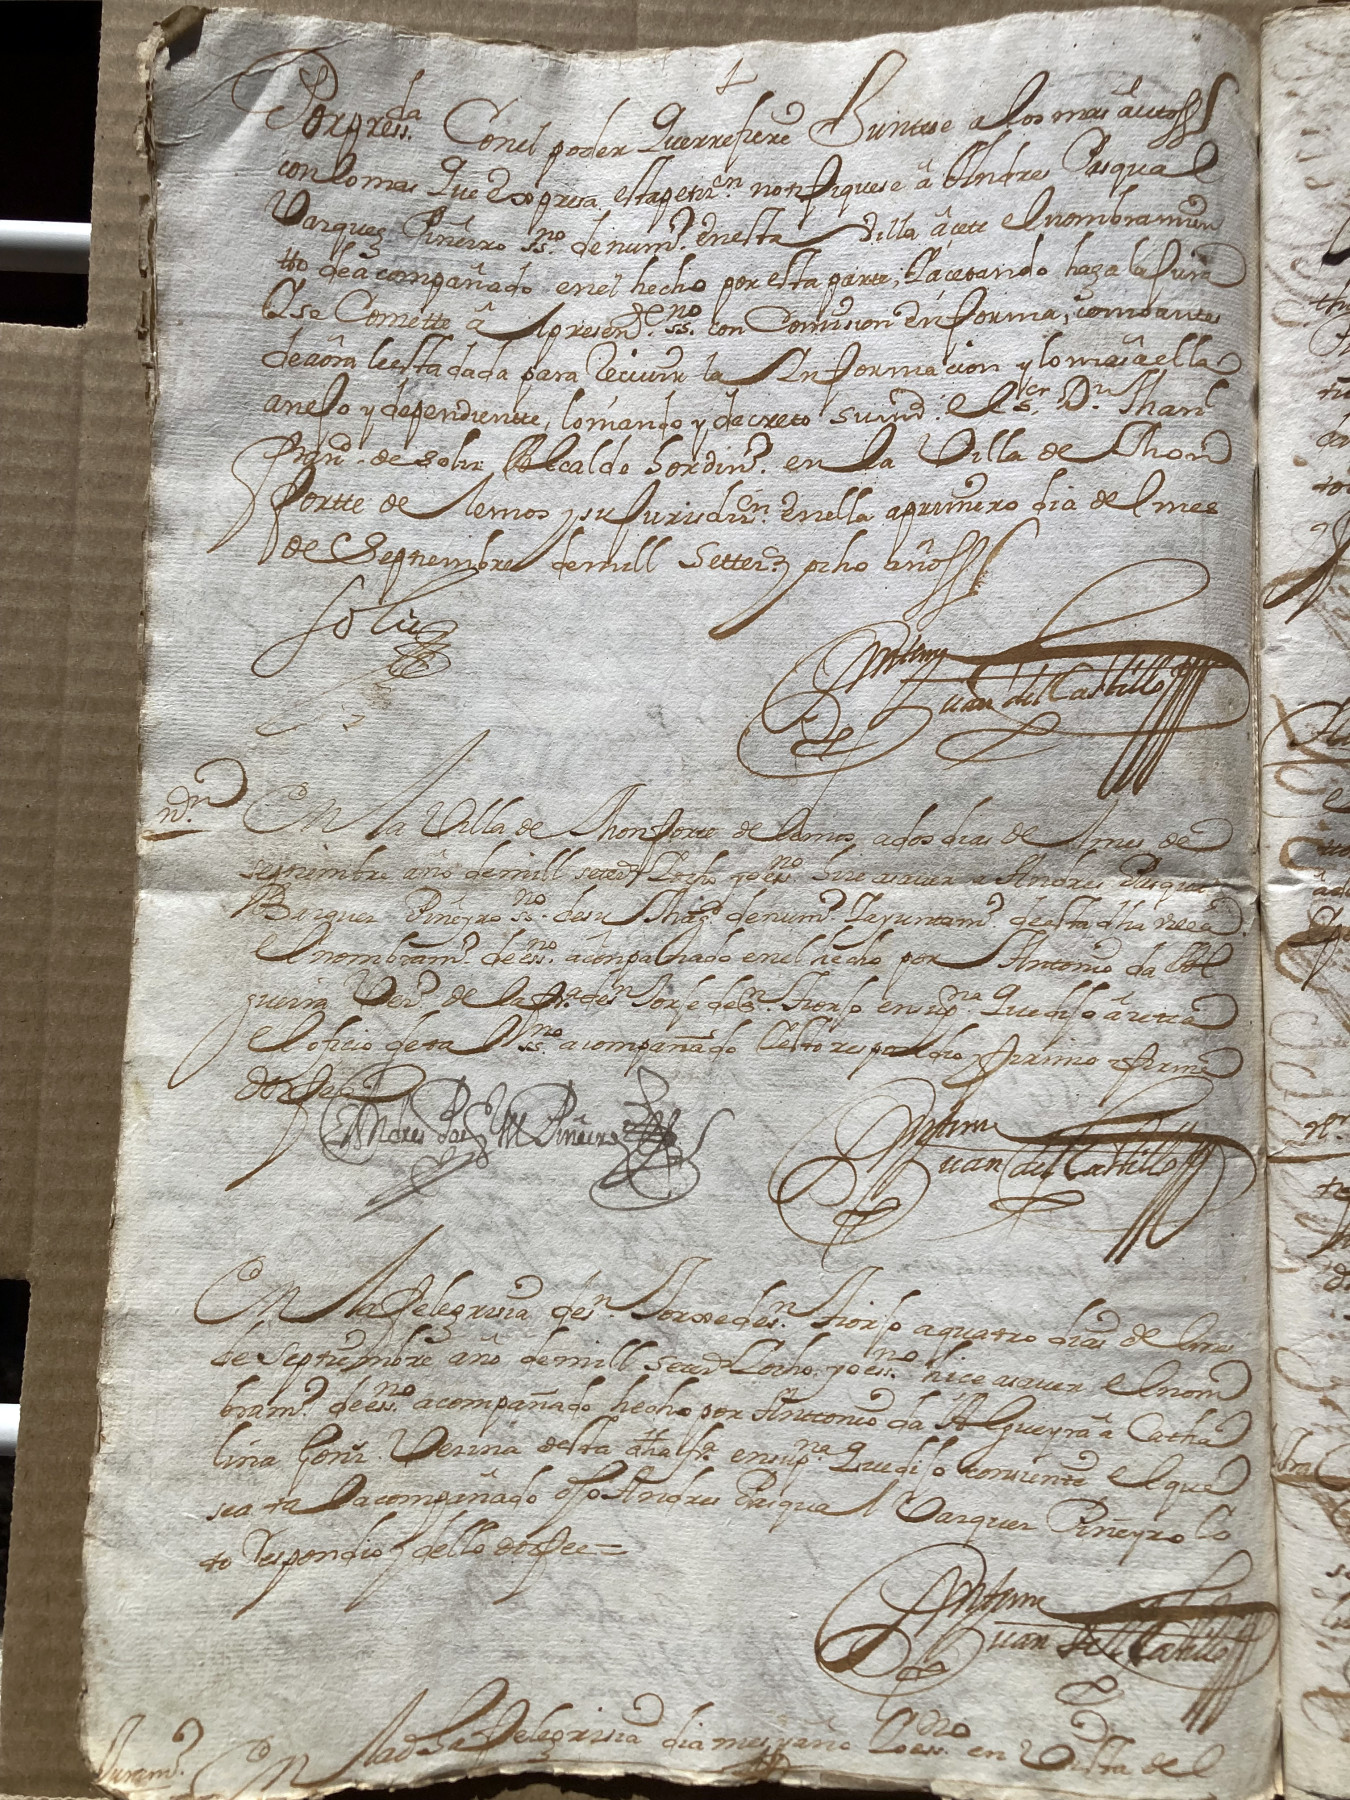 Porpressda Con el poder querrefiere Juntese a los mas autos
con lo mas que expresa esta petizn notifiquese â Andres Pasqual
Vazquez Piñeiro ssno de numo enesta villa âcete el nombramien
tto de acompañado enel hecho por esta parte, y acetando haga la Jura
y se Comette â el presente ssno con Comision en forma, como antes
de aôra le esta dada para recivir la Informacion y lo mas a ella
anejo y dependiente, lo mando y decreto su md el sr Dn
Frano de Solis Alcalde hordino en la Villa de Mon
fortte de Lemos y su Jurisdizn enella a primero dia del mes
de Septiembre de mill Settezs y ocho años
Solis
Antemy
Juan del Castillo
non
En la Villa de Monfortte de Lemos, a dos dias del mes de
septiembre año de mill setezs y ocho yo essno hice a saver a Andres Pasqual
Bazquez Piñeyro ssno de su Magd de numo y ayuntamo de esta dha villa
el nombramo de essno acompañado enel hecho por Antonio da Al
gueira Vezo de la fra de sn Jorje de sn Tiorjo en su pna que dijo âcetta
el oficio de tal ssno acompañado esto respondio y firmo y firme
doi fee
Andres Pasql Vz Piñeiro
Antemi
Juan del Castillo
En la felegrisia de sn Jorxe de sn Tiorjo a quatro dias del mes
de Septiembre año de mill setezs y ocho yo essno hice a saver el nom
bramo de essno acompañado hecho por Anttonio da Algueyra â Catha
lina Gonz Vezina desta dha fra en su pna que dijo consiente el que
sea tal acompañado el dho Andres Pasqual Vazquez Piñeyro Es
to respondio y dello doi fee =
Antemi
Juan del Castillo
Juramo
En la dha felegrisia dia mes y año dho yo essno en Vista del